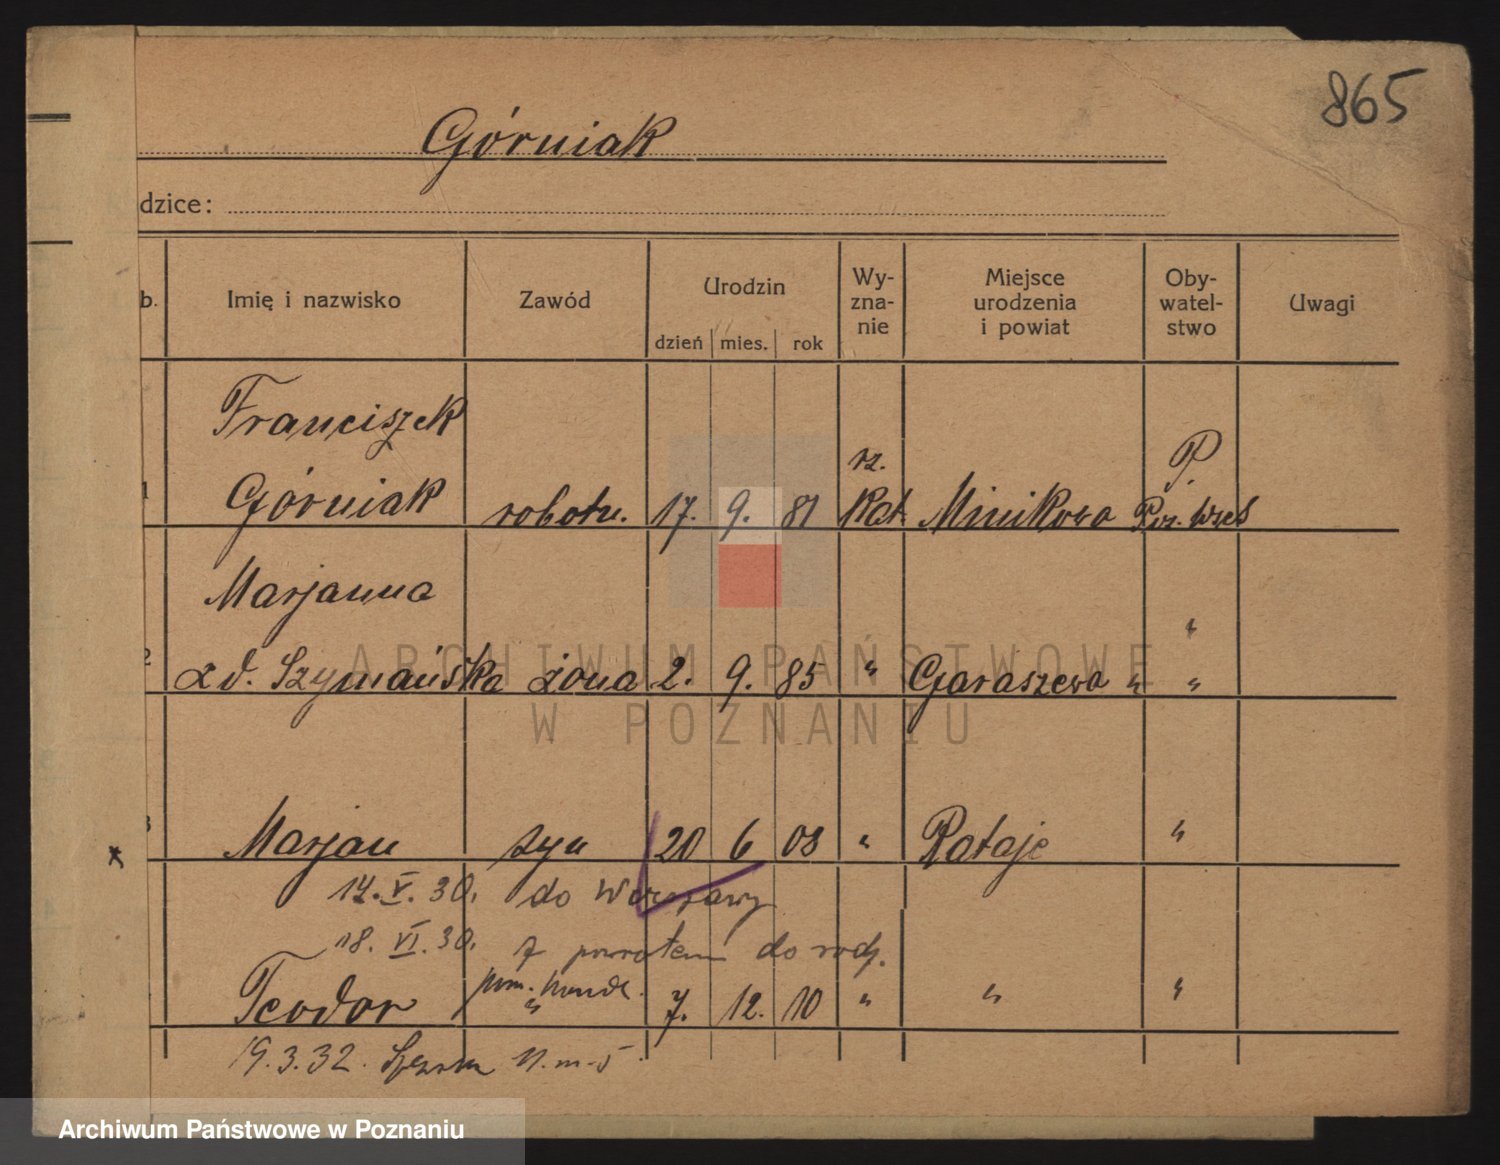 865
Górniak
dzice:
b. Imię i nazwisko Zawód Urodzin dzień mies. rok Wy-zna-nie Miejsce urodzenia i powiat Oby-watel-stwo Uwagi
Franciszek
rz. P.
1 Górniak robotn. 17. 9. 81 Kat Minikowo Poz.
Marjanna "
2 zd. Szymańska żona 2. 9. 85 " Garaszewo " "
3 Marjan syn 20 6 08 " Rataje "
14. V. 30. do Warszawy
18. VI. 30. z powrotem do rodz.
pom. handl.
Teodor " 7. 12. 10 " " "
19.3.32. 11. m. 5.
ARCHIWUM PAŃSTWOWE
W POZNANIU
Archiwum Państwowe w Poznaniu